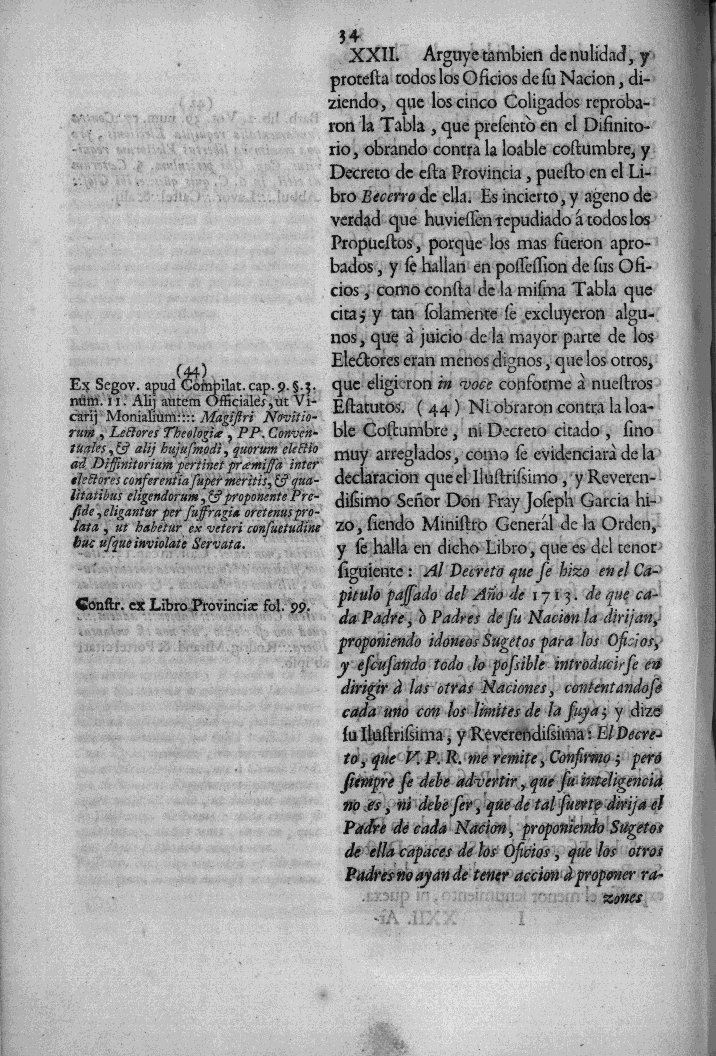 34
XXII. Arguye tambien de nulidad, y
protesta todos los Oficios de su Nacion, di-
ziendo, que los cinco Coligados reproba-
ron la Tabla, que presentò en el Difinito-
rio, obrando contra la loable costumbre, y
Decreto de esta Provincia, puesto en el Li-
bro Becerro de ella. Es incierto, y ageno de
verdad que huviessen repudiado á todos los
Propuestos, porque los mas fueron apro-
bados, y se hallan en possession de sus Ofi-
cios, como consta de la misma Tabla que
cita; y tan solamente se excluyeron algu-
nos, que à juicio de la mayor parte de los
Electores eran menos dignos, que los otros,
que eligieron in voce conforme à nuestros
Estatutos. (44) Ni obraron contra la loa-
ble Costumbre, ni Decreto citado, sino
muy arreglados, como se evidenciarà de la
declaracion que el Ilustrissimo, y Reveren-
dissimo Señor Don Fray Joseph Garcia hi-
zo, siendo Ministro Generál de la Orden,
y se halla en dicho Libro, que es del tenor
siguiente: Al Decreto que se hizo en el Ca-
pitulo passado del Año de 1713. de que ca-
da Padre, ò Padres de su Nacion la dirijan,
proponiendo idoneos Sugetos para los Oficios,
y escusando todo lo possible introducirse en
dirigir à las otras Naciones, contentandose
cada uno con los limites de la suya; y dize
su Ilustrissima, y Reverendissima: El Decre-
to, que V. P. R. me remite, Confirmo; pero
siempre se debe advertir, que su inteligencia
no es, ni debe ser, que de tal suerte dirija el
Padre de cada Nacion, proponiendo Sugetos
de ella capaces de los Oficios, que los otros
Padres no ayan de tener accion à proponer ra-
zones
(44)
Ex Segov. apud Compilat. cap. 9. §. 3.
num. 11. Alij autem Officiales, ut Vi-
carij Monialium:::: Magistri Novitio-
rum, Lectores Theologiæ, PP. Conven-
tuales, & alij hujusmodi, quorum electio
ad Diffinitorium pertinet præmissa inter
electores conferentia super meritis, & qua-
litatibus eligendorum, & proponente Præ-
side, eligantur per suffragia oretenus pro-
lata, ut habetur ex veteri consuetudine
huc usque inviolate Servata.
Constr. ex Libro Provinciæ fol. 99.